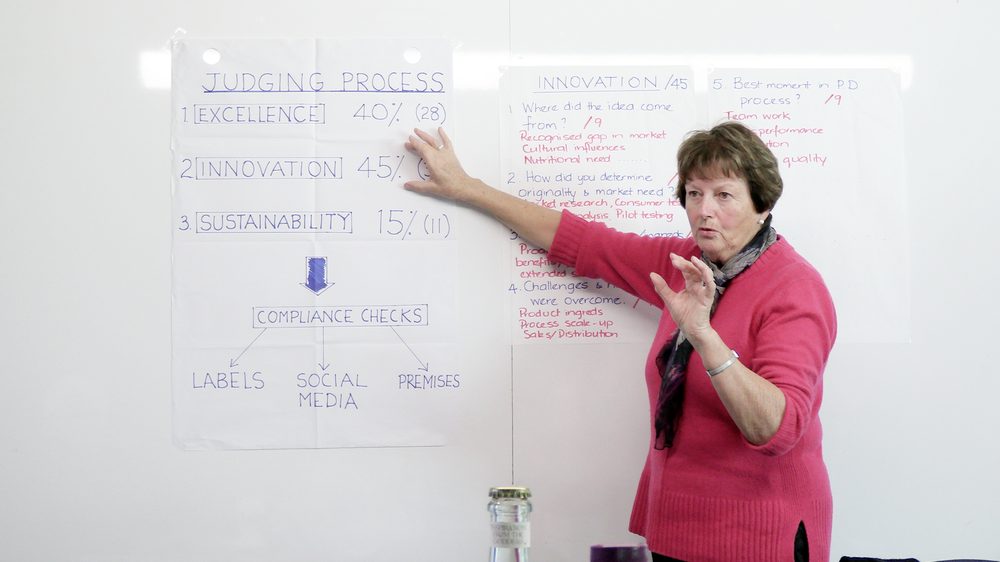 JUDGING PROCESS
1 EXCELLENCE 40% (28)
2 INNOVATION 45%
3. SUSTAINABILITY 15% (11)
COMPLIANCE CHECKS
LABELS SOCIAL MEDIA PREMISES
INNOVATION /45
1 Where did the idea come
from? /9
Recognised gap in market
Cultural influences
Nutritional need........
2. How did you determine
originality & market need?
research, Consumer
Pilot testing
extended
4. Challenges &
were overcome.
Product ingreds
Process scale-up
Sales/Distribution
5. Best moment in P.D
process? /9
Team work
performance
quality